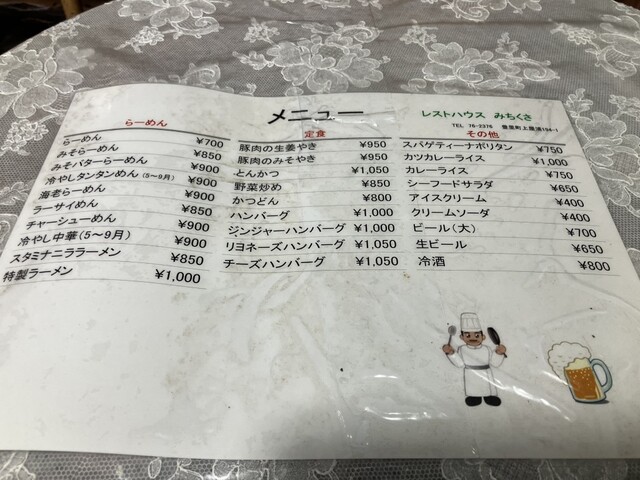 メニュー
レストハウス みちくさ
TEL 76-2276 豊里町上
らーめん
らーめん ¥700
みそらーめん ¥850
みそバターらーめん ¥900
冷やしタンタンめん(5~9月) ¥900
海老らーめん ¥900
ラーサイめん ¥850
チャーシューめん ¥900
冷やし中華(5~9月) ¥900
スタミナニララーメン ¥850
特製ラーメン ¥1,000
定食
豚肉の生姜やき ¥950
豚肉のみそやき ¥950
とんかつ ¥1,050
野菜炒め ¥850
かつどん ¥800
ハンバーグ ¥1,000
ジンジャーハンバーグ ¥1,000
リヨネーズハンバーグ ¥1,050
チーズハンバーグ ¥1,050
その他
スパゲティーナポリタン ¥750
カツカレーライス ¥1,000
カレーライス ¥750
シーフードサラダ ¥650
アイスクリーム ¥400
クリームソーダ ¥400
ビール(大) ¥700
生ビール ¥650
冷酒 ¥800